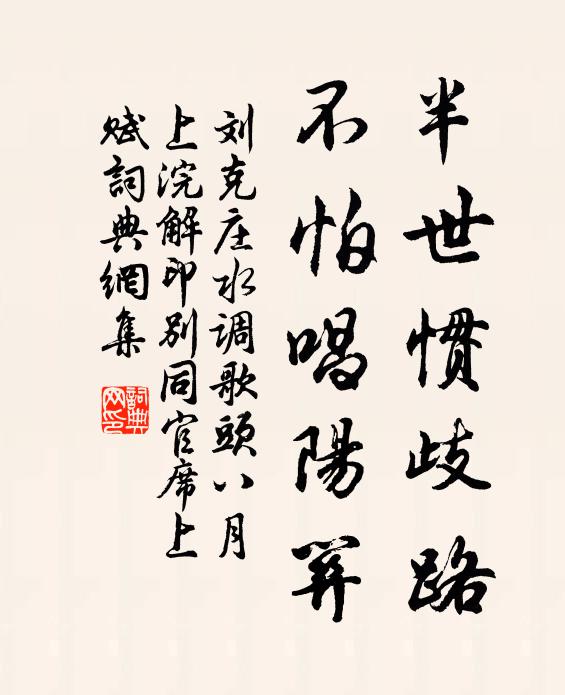 半世慣歧路
不怕唱陽關
刘克庄水調歌頭八月
上浣解印别同官席上
賦詞典網集
詞典
网印